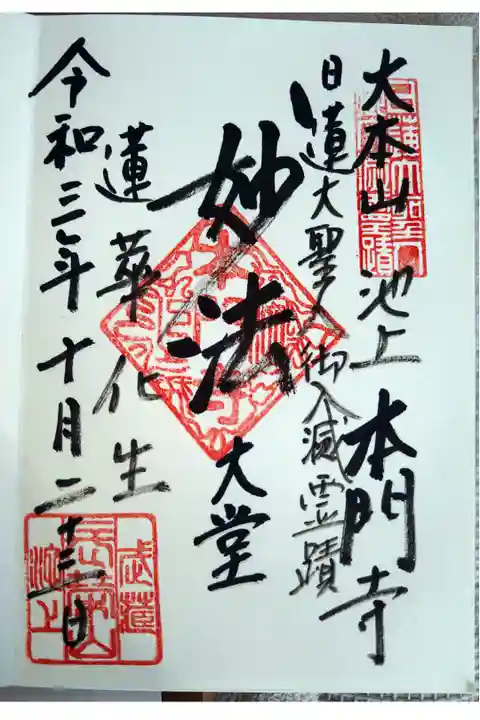 大本山 池上 本門寺
日蓮大聖人御入滅霊蹟
妙法
大堂
蓮華化生
令和三年十月二十三日
武蔵
長榮山
池上